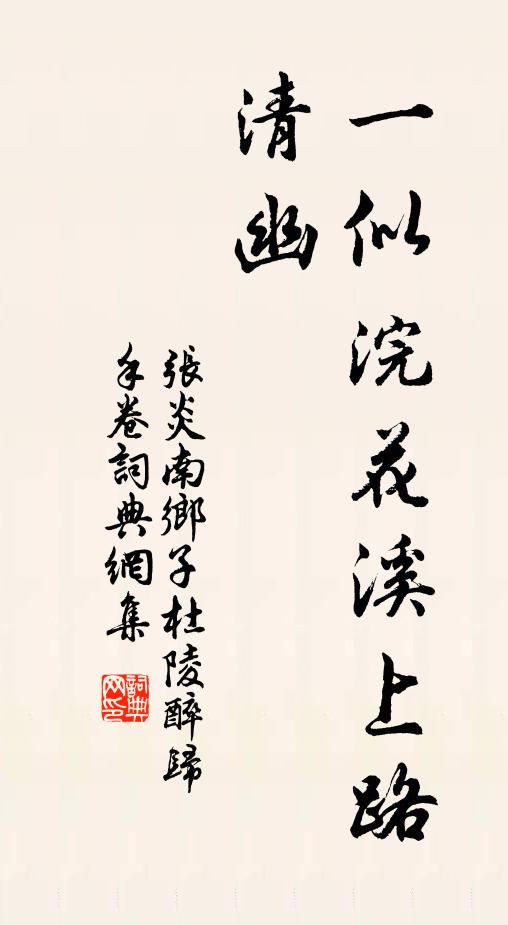 一似浣花溪上路
清幽
張炎南鄉子杜陵醉歸
手卷詞典網集
詞典
网印